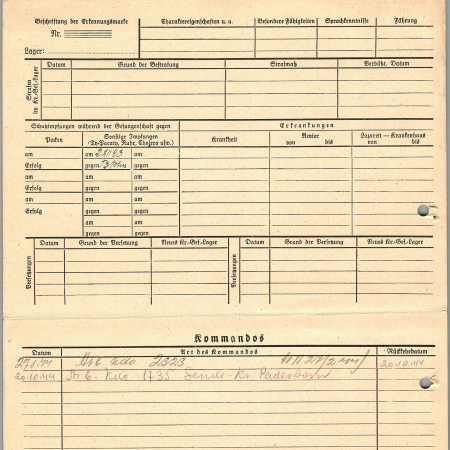 Beschriftung der Erkennungsmarke
Nr.
Lager:
Charaktereigenschaften u. a.
Besondere Fähigkeiten
Sprachkenntnisse
Führung
Strafen im Kr.-Gef.-Lager
Datum
Grund der Bestrafung
Strafmaß
Verbüßt, Datum
Schutzimpfungen während der Gefangenschaft gegen
Erkrankungen
Pocken
Sonstige Impfungen
(Ty-Paraty, Ruhr, Cholera usw.)
Krankheit
Revier
von bis
Lazarett – Krankenhaus
von bis
am am am
Erfolg gegen gegen
am am am
Erfolg gegen gegen
am am am
Erfolg gegen gegen
am am
gegen gegen
Versetzungen
Datum Grund der Versetzung Neues Kr.-Gef.-Lager
Versetzungen
Datum Grund der Versetzung Neues Kr.-Gef.-Lager
Kommandos
Datum Art des Kommandos Rückkehrdatum
Arb. Kdo 2323 20.10.44
20.10.44 Arb. Kdo 1735 Sende-Kr. Paderborn